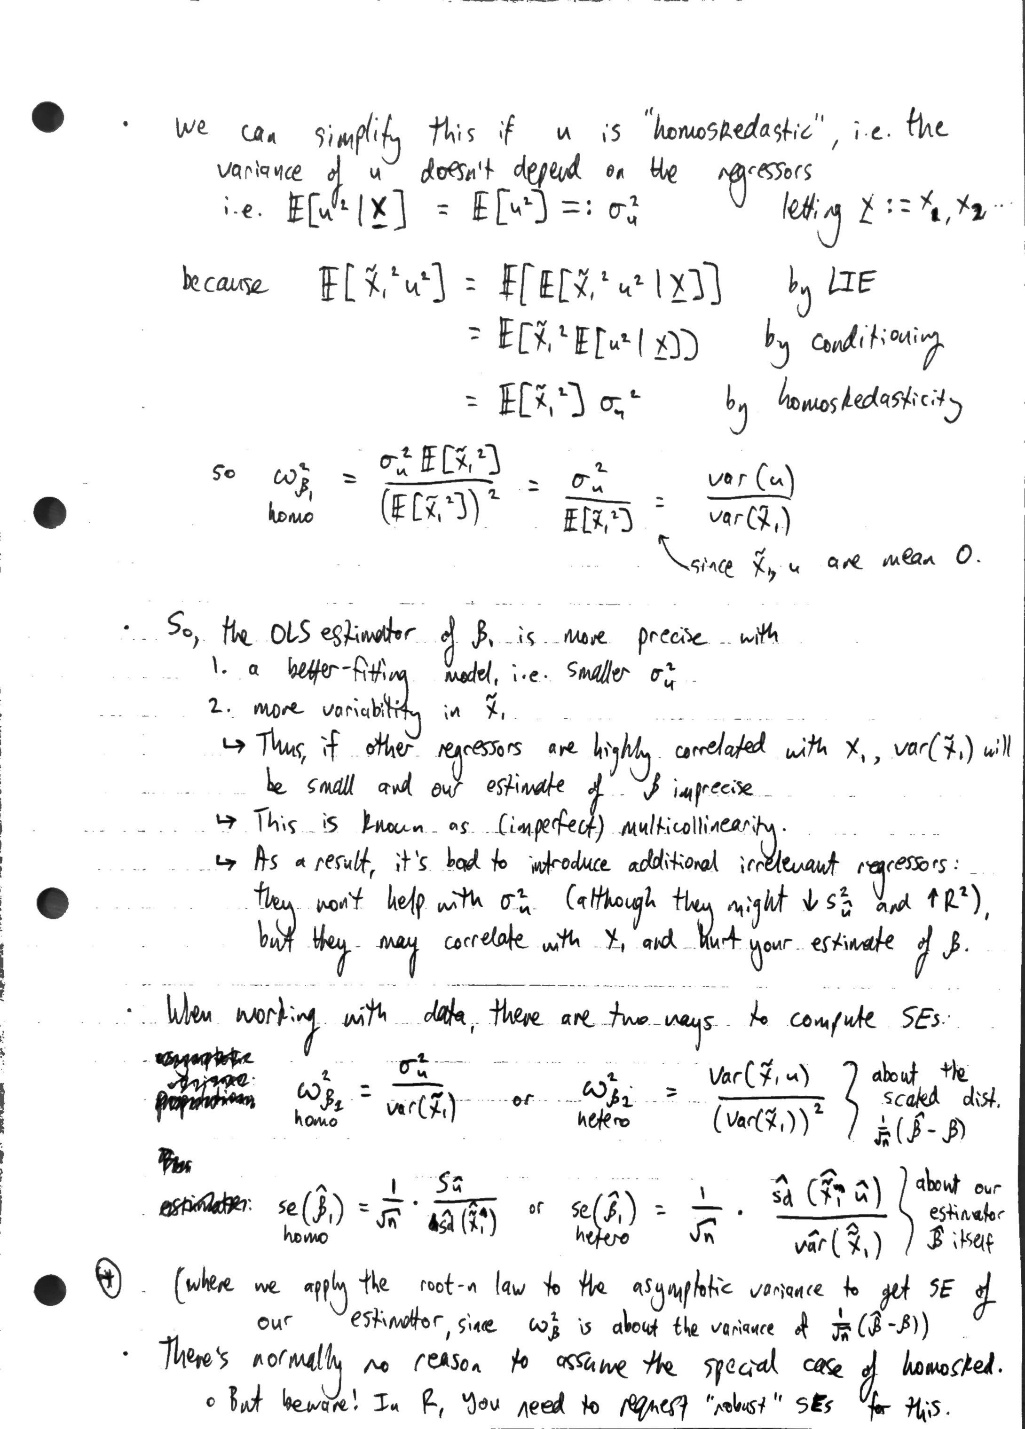 · We can simplify this if u is "homoskedastic", i.e. the
variance of u doesn't depend on the regressors
i.e. 𝔼[u² | X̲] = 𝔼[u²] =: σᵤ² letting X̲ := X₁, X₂ ...
because 𝔼[X̃₁² u²] = 𝔼[𝔼[X̃₁² u² | X̲]] by LIE
= 𝔼[X̃₁² 𝔼[u² | X̲]] by conditioning
= 𝔼[X̃₁²] σᵤ² by homoskedasticity
so ω²_β₁ homo = σᵤ² 𝔼[X̃₁²] / (𝔼[X̃₁²])² = σᵤ² / 𝔼[X̃₁²] = var(u) / var(X̃₁)
since X̃₁, u are mean 0.
· So, the OLS estimator of β₁ is more precise with
1. a better-fitting model, i.e. smaller σᵤ²
2. more variability in X̃₁
↳ Thus, if other regressors are highly correlated with X₁, var(X̃₁) will
be small and our estimate of β imprecise
↳ This is known as (imperfect) multicollinearity.
↳ As a result, it's bad to introduce additional irrelevant regressors:
they won't help with σᵤ² (although they might ↓ s²_û and ↑ R²),
but they may correlate with X₁ and hurt your estimate of β.
· When working with data, there are two ways to compute SEs:
ω²_β₁ homo = σᵤ² / var(X̃₁) or ω²_β₁ hetero = Var(X̃₁u) / (Var(X̃₁))² } about the scaled dist. 1/√n (β̂ - β)
se(β̂₁) homo = 1/√n · s_û / ŝd(X̃̂₁) or se(β̂₁) hetero = 1/√n · ŝd(X̃̂₁ û) / vâr(X̃̂₁) } about our estimator β̂ itself
(where we apply the root-n law to the asymptotic variance to get SE of
our estimator, since ω²_β is about the variance of 1/√n (β̂ - β))
· There's normally no reason to assume the special case of homosked.
∘ But beware! In R, you need to request "robust" SEs for this.